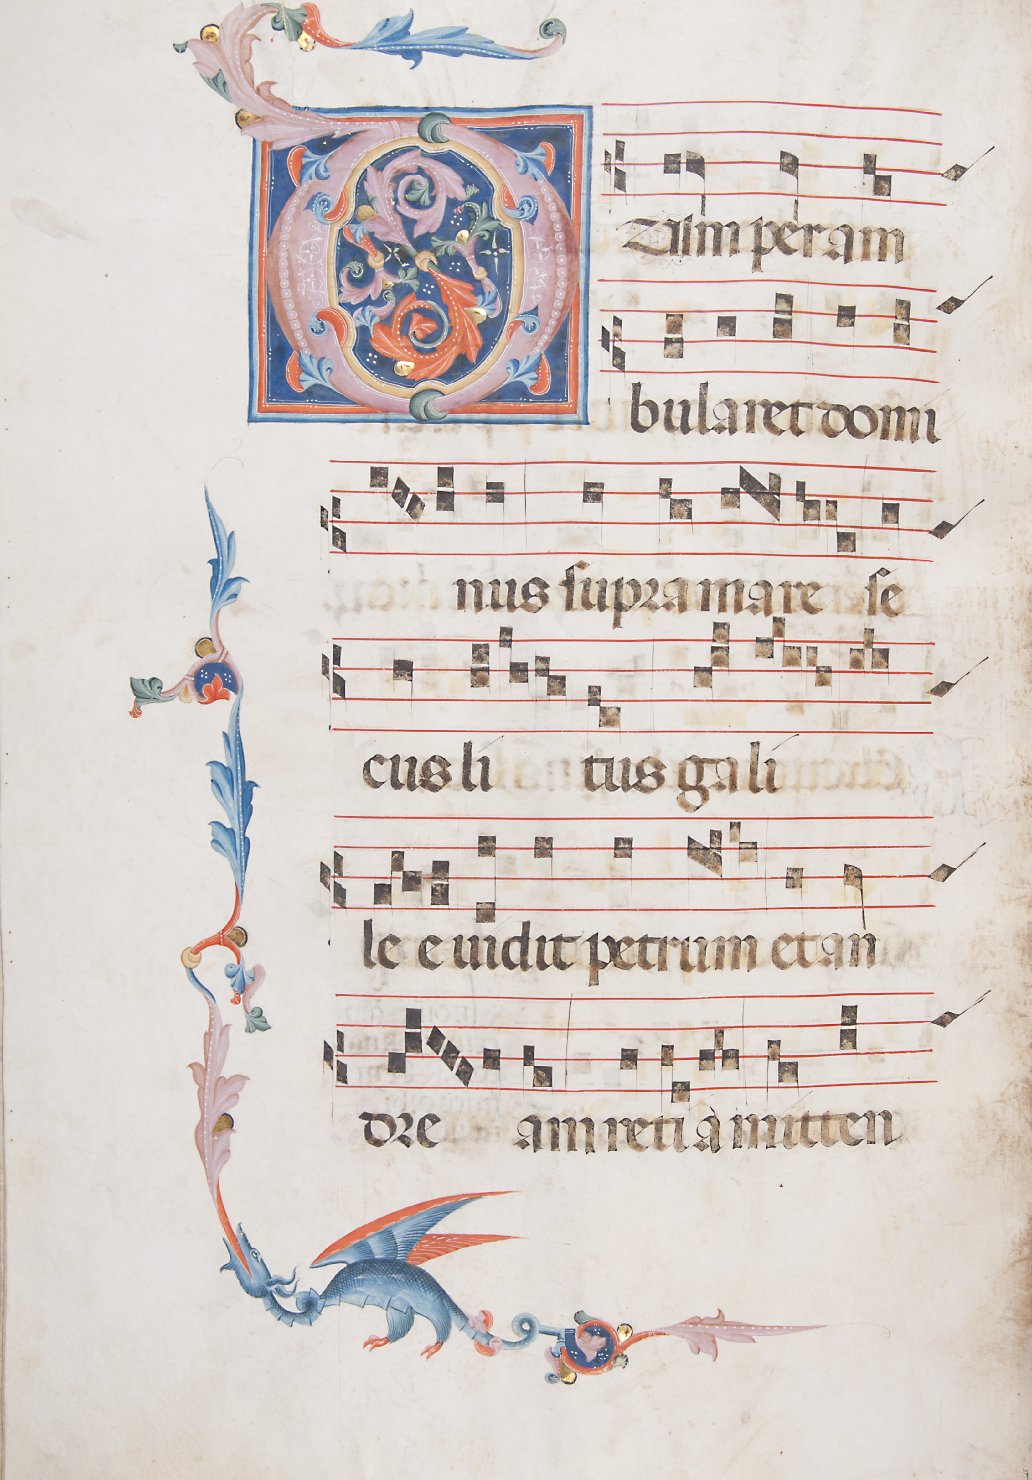 DUm peram
bularet domi
nus supra mare se
cus li tus gali
le e uidit petrum et an
dre am reti a mitten